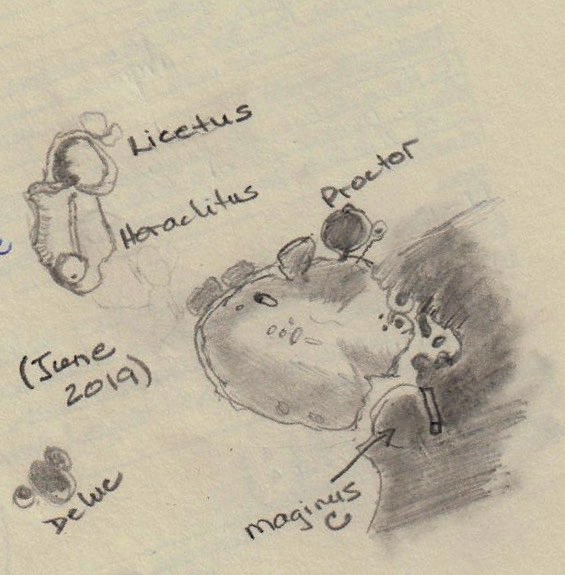 Licetus
Proctor
Heraclitus
(June
2019)
Deluc
Maginus
C